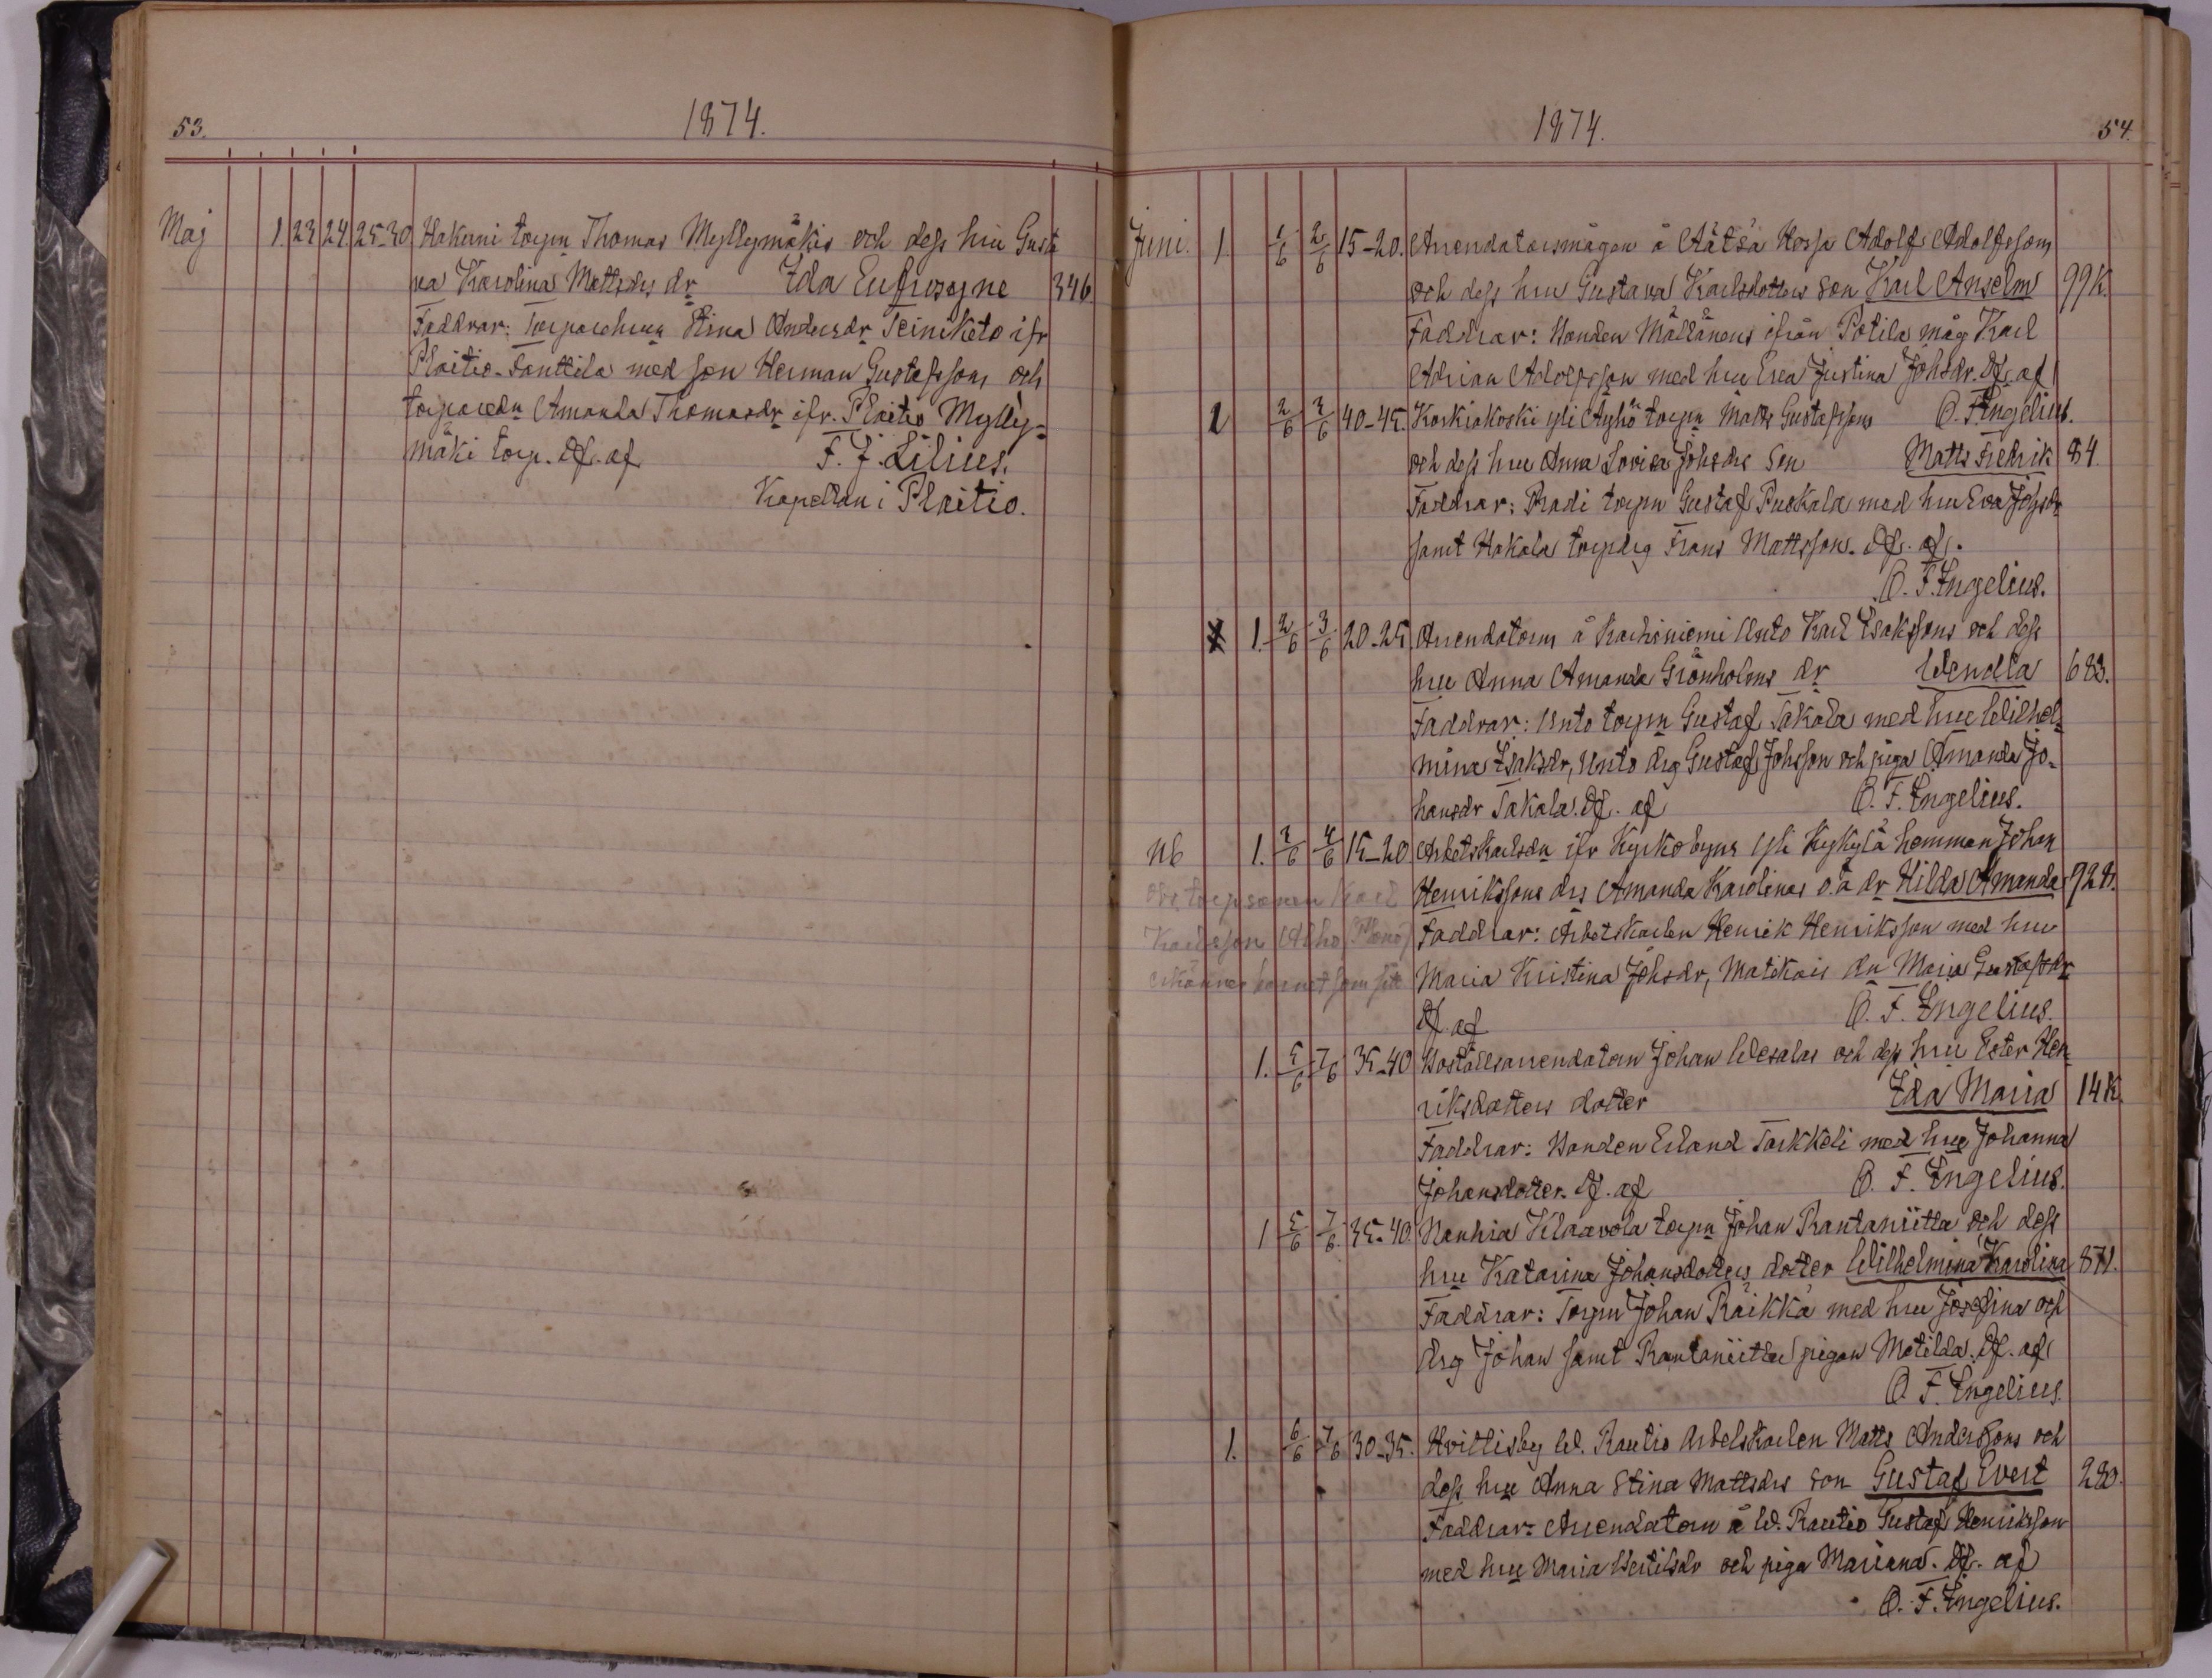 53. 1874.
Maj 1. 23 24. 25-30 Hakuni torpn Thomas Myllymäkis och dess hu Gusta
va Karolina Mattsdrs dr Ida Eufrosyne 346.
Faddrar: Torparehun Stina Andersdr Seiniketo ifr
Plaitio-Panttila med son Herman Gustafsson och
torparedn Amanda Thomasdr ifr. Plaitio Mylly=
mäki torp. Df. af F. J. Lilius.
Kapellan i Plaitio.
1874. 54.
Juni. 1. 1/6 2/6 15-20. Arrendatorsmågen å Äätsä Hossa Adolf Adolfssons
och dess hu Gustava Karlsdotters son Karl Anselm 99K.
Faddrar: Bonden ifrån Potila måg Karl
Adrian Adolfsson med hu Eva Justina Johsdr. Df. af
1 2/6 2/6 40-45. Koskiokoski yli Äyhö torpn Matts Gustafssons O. F. Engelius.
och dess hu Anna Lovisa Johsdrs Son Matts Fredrik 84.
Faddrar: Pradi torpn Gustaf Puskala med hu Eva Johsdr
samt Hakala torpdrg Frans Mattsson. Df. af.
O. F. Engelius.
1. 2/6 3/6 20-25. Arrendatorns å Karhiniemi Unto Karl Isakssons och dess
hu Anna Amanda Grönholms dr Wendla 683.
Faddrar: Unto torpn Gustaf Takala med hu Wilhel=
mina Isaksdr, Unto drg Gustaf Johsson och piga Amanda Jo=
hansdr Takala. Df. af O. F. Engelius.
Nb 1. 3/6 4/6 15-20 Arbetskarlsdn ifr Kyrkobyns yli Kykylä hemman Johan
torpsonen Karl Henrikssons drs Amanda Karolinas o.ä dr Hilda Amanda 928.
Karlsson Alho Faddrar: Arbetskarlen Henrik Henriksson med hu
erkänner barnet som sitt Maria Kristina Johsdr, Matikais dn Maria Gustafsdr
Df. af O. F. Engelius.
1. 5/6 7/6 35-40 Boställsarrendatorn Johan Wesalas och dess hu Ester Hen
riksdotters dotter Ida Maria 14K.
Faddrar: Bonden Erland Torkkeli med hu Johanna
Johansdotter. Df. af O. F. Engelius.
1 5/6 7/6. 35-40. Nanhia Klaavola torpn Johan Rantaniitta och dess
hu Katarina Johansdotters dotter Wilhelmina Karolina 871.
Faddrar: Torpn Johan Räikkä med hu Josefina och
drg Johan samt Rantaniittu pigan Matilda. Df. af
O. F. Engelius.
1. 6/6 7/6 30-35. Hvittisby W. Rautio Arbetskarlen Matts Anderssons och
dess hu Anna Stina Mattsdrs son Gustaf Evert 280.
Faddrar: Arrendatorn å W. Rautio Gustaf Henriksson
med hu Maria Bertilsdr och piga Mariana. Df. af
O. F. Engelius.